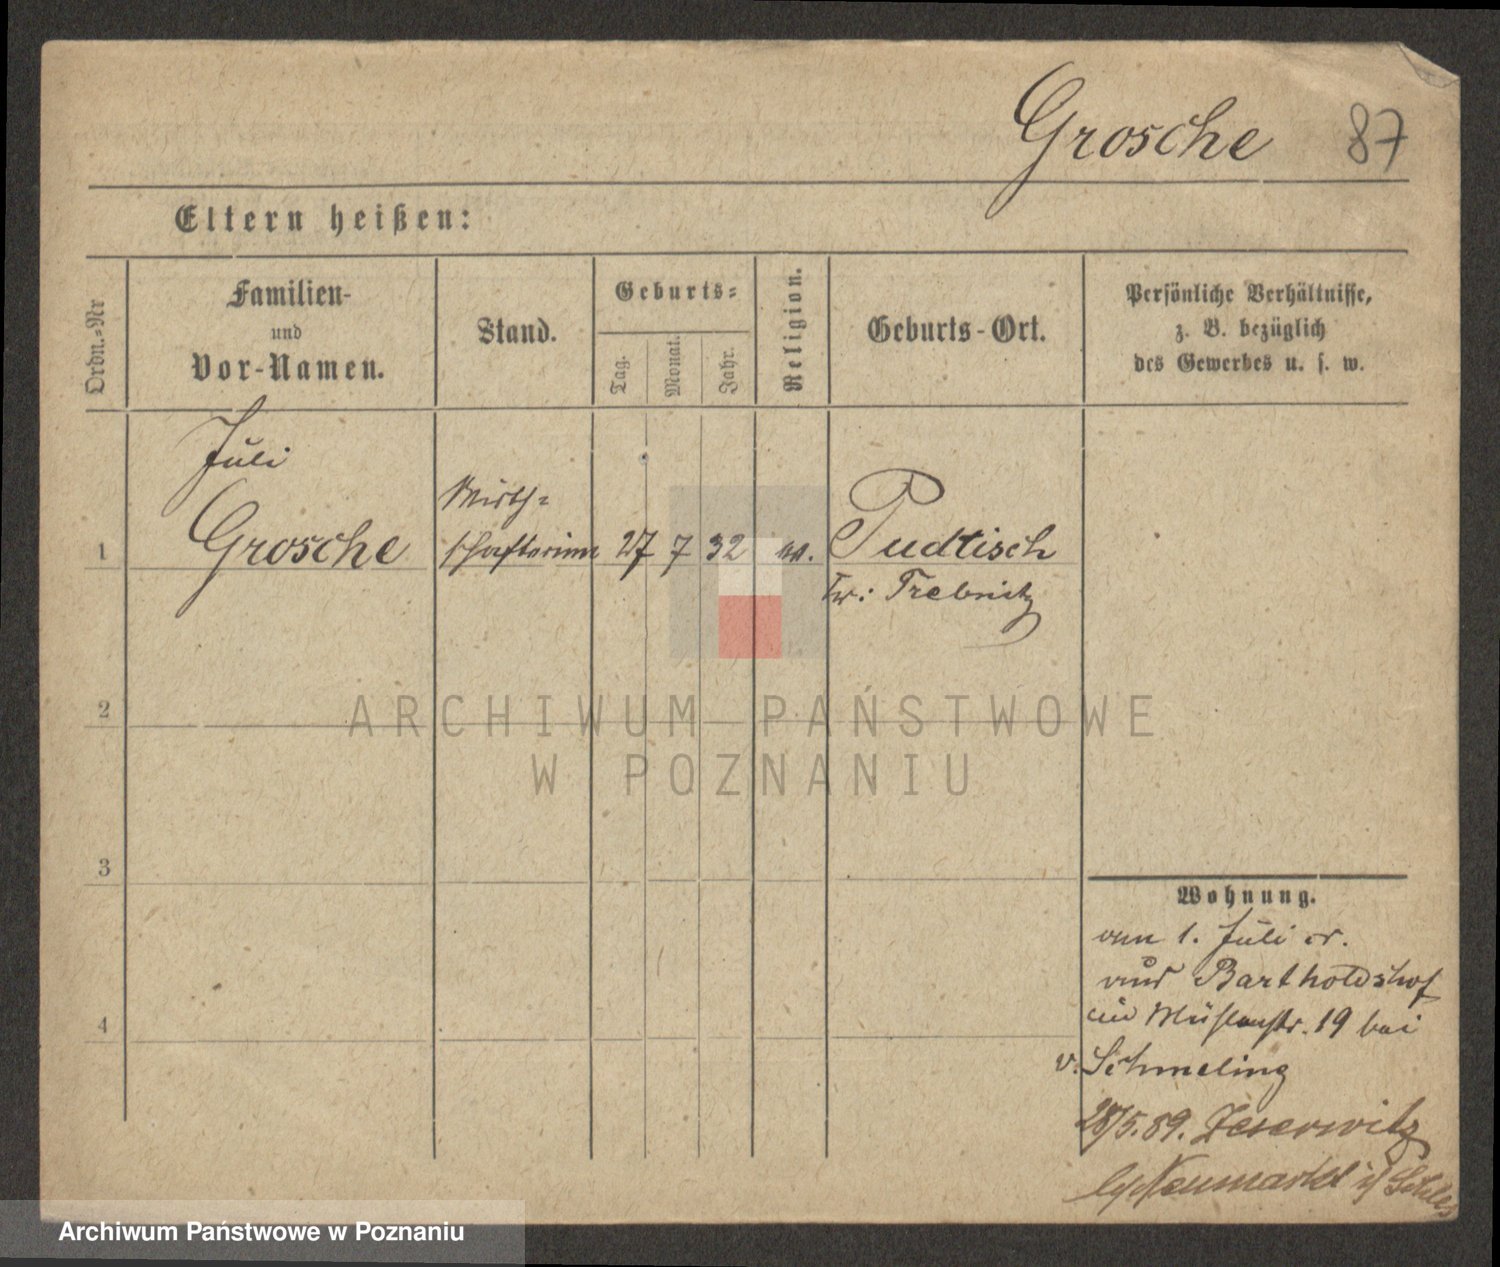 Grosche 87
Eltern heißen:
Ordn.-Nr
Familien-
und
Vor-Namen.
Stand.
Geburts-
Tag.
Monat.
Jahr.
Religion.
Geburts-Ort.
Persönliche Verhältnisse,
z. B. bezüglich
des Gewerbes u. s. w.
Juli
Grosche
Wirth-
schafterinn
1
27 7 32
Pudtisch
Kr: Trebnitz
2
3
4
ARCHIWUM PAŃSTWOWE
W POZNANIU
Wohnung.
vom 1. Juli cr.
aus Bartholdshof
in Mühlenstr. 19 bei
v. Schmeling
28/5.89.
Neumarkt i/ Schles
Archiwum Państwowe w Poznaniu